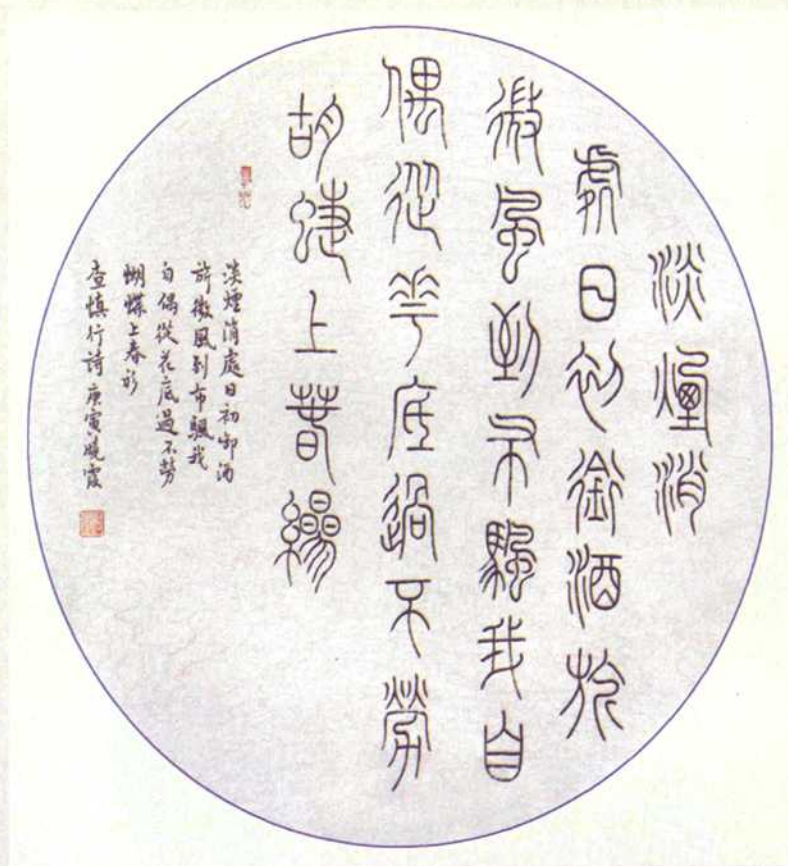 淡煙消
處日初銜酒旆
微風到布颿我自
偶從花底過不勞
胡蜨上春縿
淡煙消處日初銜酒
旆微風到布颿我
自偶從花底過不勞
蝴蝶上春衫
查慎行詩 庚寅曉霞